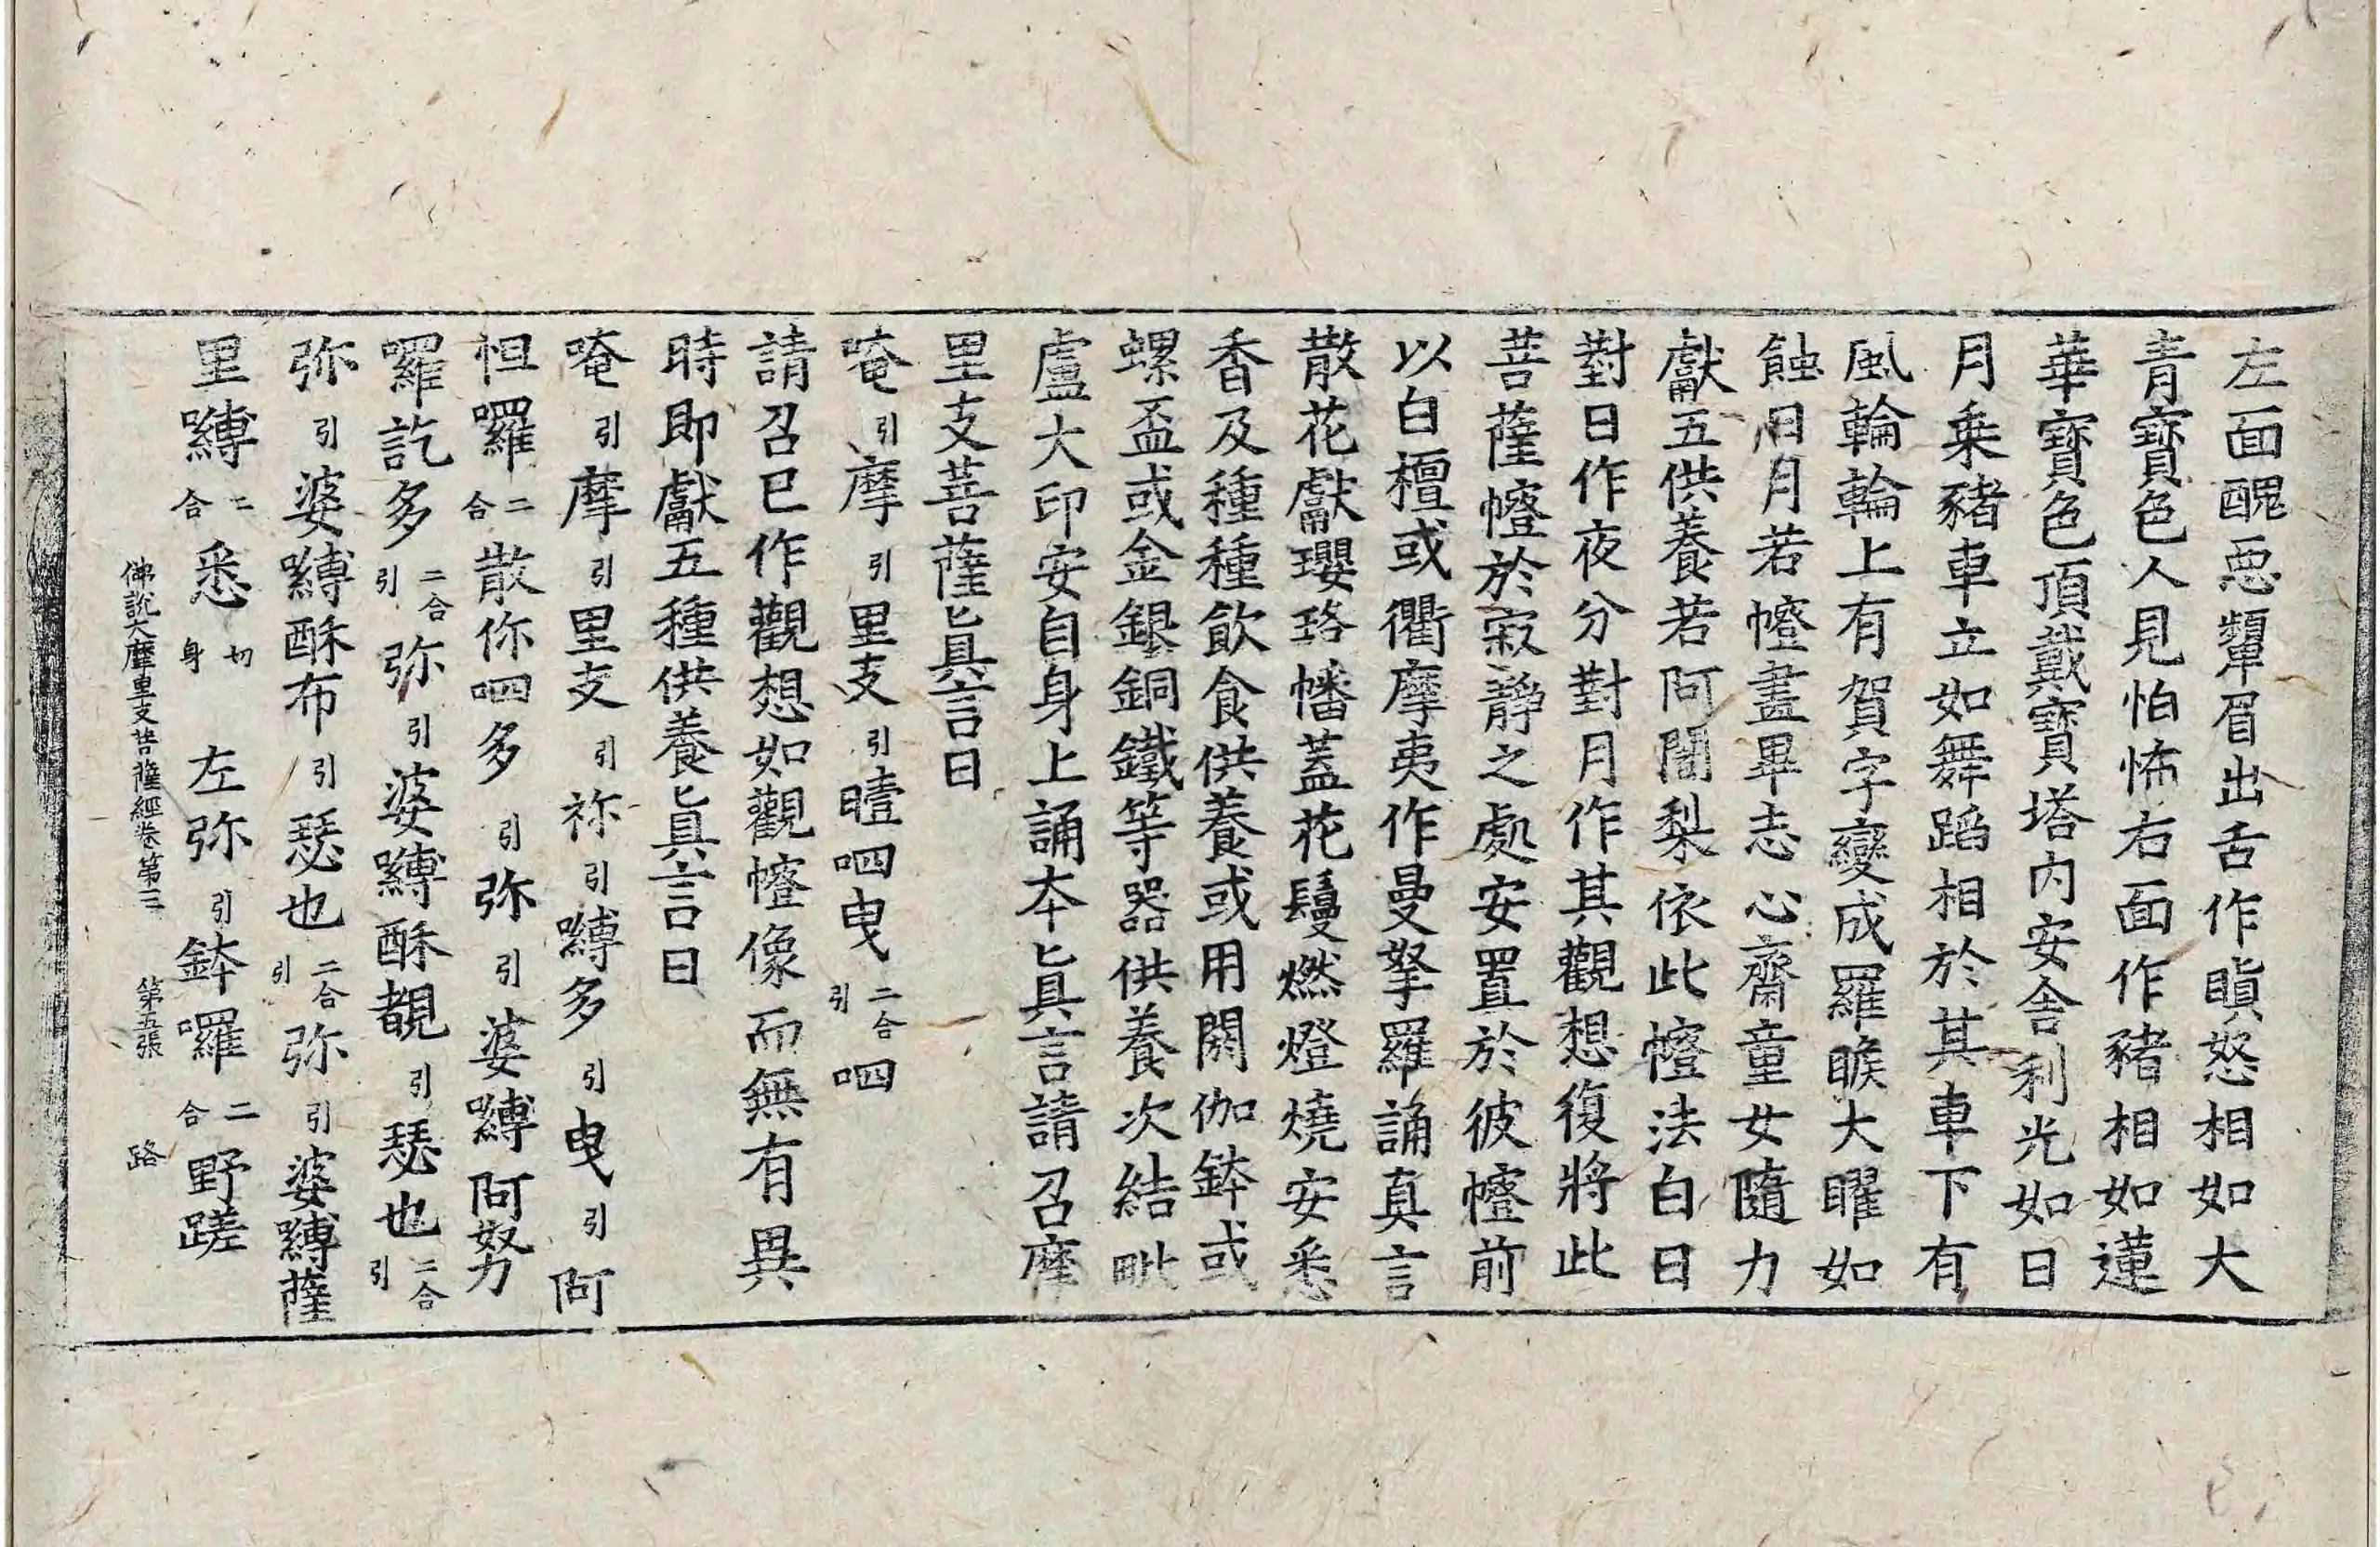 左面醜惡顰眉出舌作瞋怒相如大
青寶色人見怕怖右面作豬相如蓮
華寶色頂戴寶塔內安舍利光如日
月乗豬車立如舞蹈相於其車下有
風輪輪上有賀字變成羅睺大曜如
蝕日月若㡧畫畢志心齋童女隨力
獻五供養若阿闍梨依此㡧法白日
對日作夜分對月作其觀想復將此
菩薩㡧於寂靜之處安置於彼㡧前
以白檀或衢摩夷作曼拏羅誦真言
散花獻瓔珞幡蓋花鬘燃燈燒安悉
香及種種飲食供養或用閼伽鉢或
螺盃或金銀銅鐵等器供養次結毗
盧大印安自身上誦本眞言請召摩
里支菩薩眞言曰
唵引摩引里支引曀呬曳二合引呬
請召已作觀想如觀㡧像而無有異
時即獻五種供養眞言曰
唵引摩引里支引祢引嚩多引曳引阿
怛囉二合散你呬多引弥引婆嚩阿努
囉訖多二合引弥引婆嚩酥覩引瑟也二合引
弥引婆嚩酥布引瑟也二合引弥引婆嚩薩
里嚩二合悉切身左弥引鉢囉二合野蹉
佛說大摩里支菩薩經卷第三 第五張 路